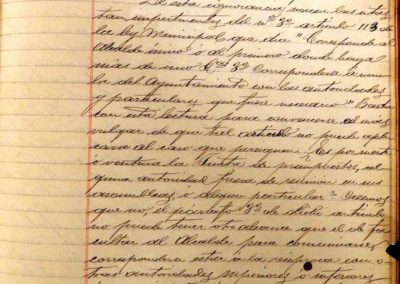 De esta ignorancia nacen las intes
tran impertinentes del nº 3º artículo 113 de
la ley Municipal que dice "Corresponde al
Alcalde único o al primero donde haya
más de uno 3º Corresponderse a nom
bre del Ayuntamiento con las autoridades
y particulares que fuere necesario" Basta
con esta lectura para convencerse el más
vulgar de que tal artículo no puede apli
carse al caso que persiguen. Es por
ventura la Junta de presupuestos, al
guna autoridad fuera de reunion en sus
asambleas, ó algun particular? Creemos
que no, el párrafo 8º de dicho artículo
no puede tener otro alcance que el de fa
cultar al Alcalde para comunicarse,
corresponderse entre a la recíproca con o
tras autoridades superiores o inferiores